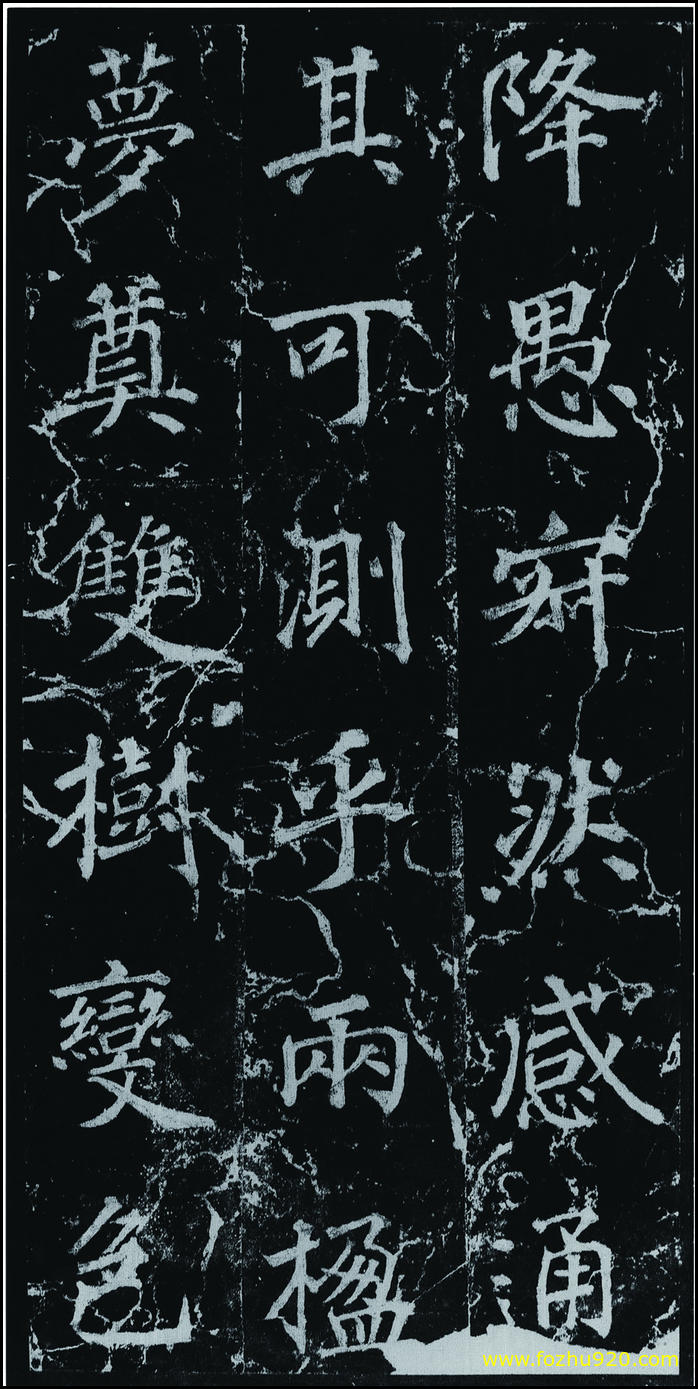 降愚寂然感通
其可測乎兩楹
夢奠雙樹變色
www.fozhu920.com